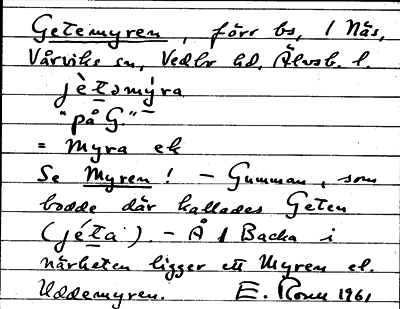 Getemyren, förr bs, 1 Näs,
Vårviks sn, Vedbo hd. Älvsb. l.
jètəmýra
"på G."
= Myra ek
Se Myren! – Gumman, som
bodde där kallades Geten
(jéta). – Å 1 Backa i
närheten ligger ett Myren el.
Uddemyren. E. 1961